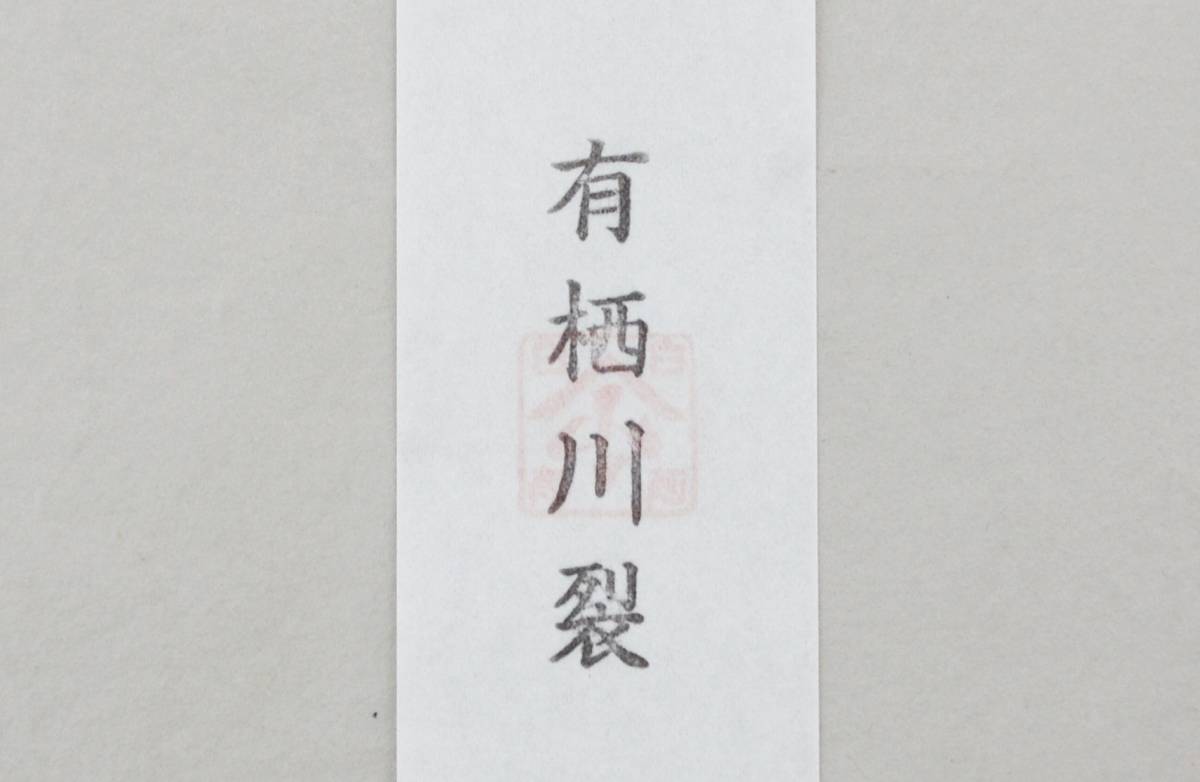 有栖川裂